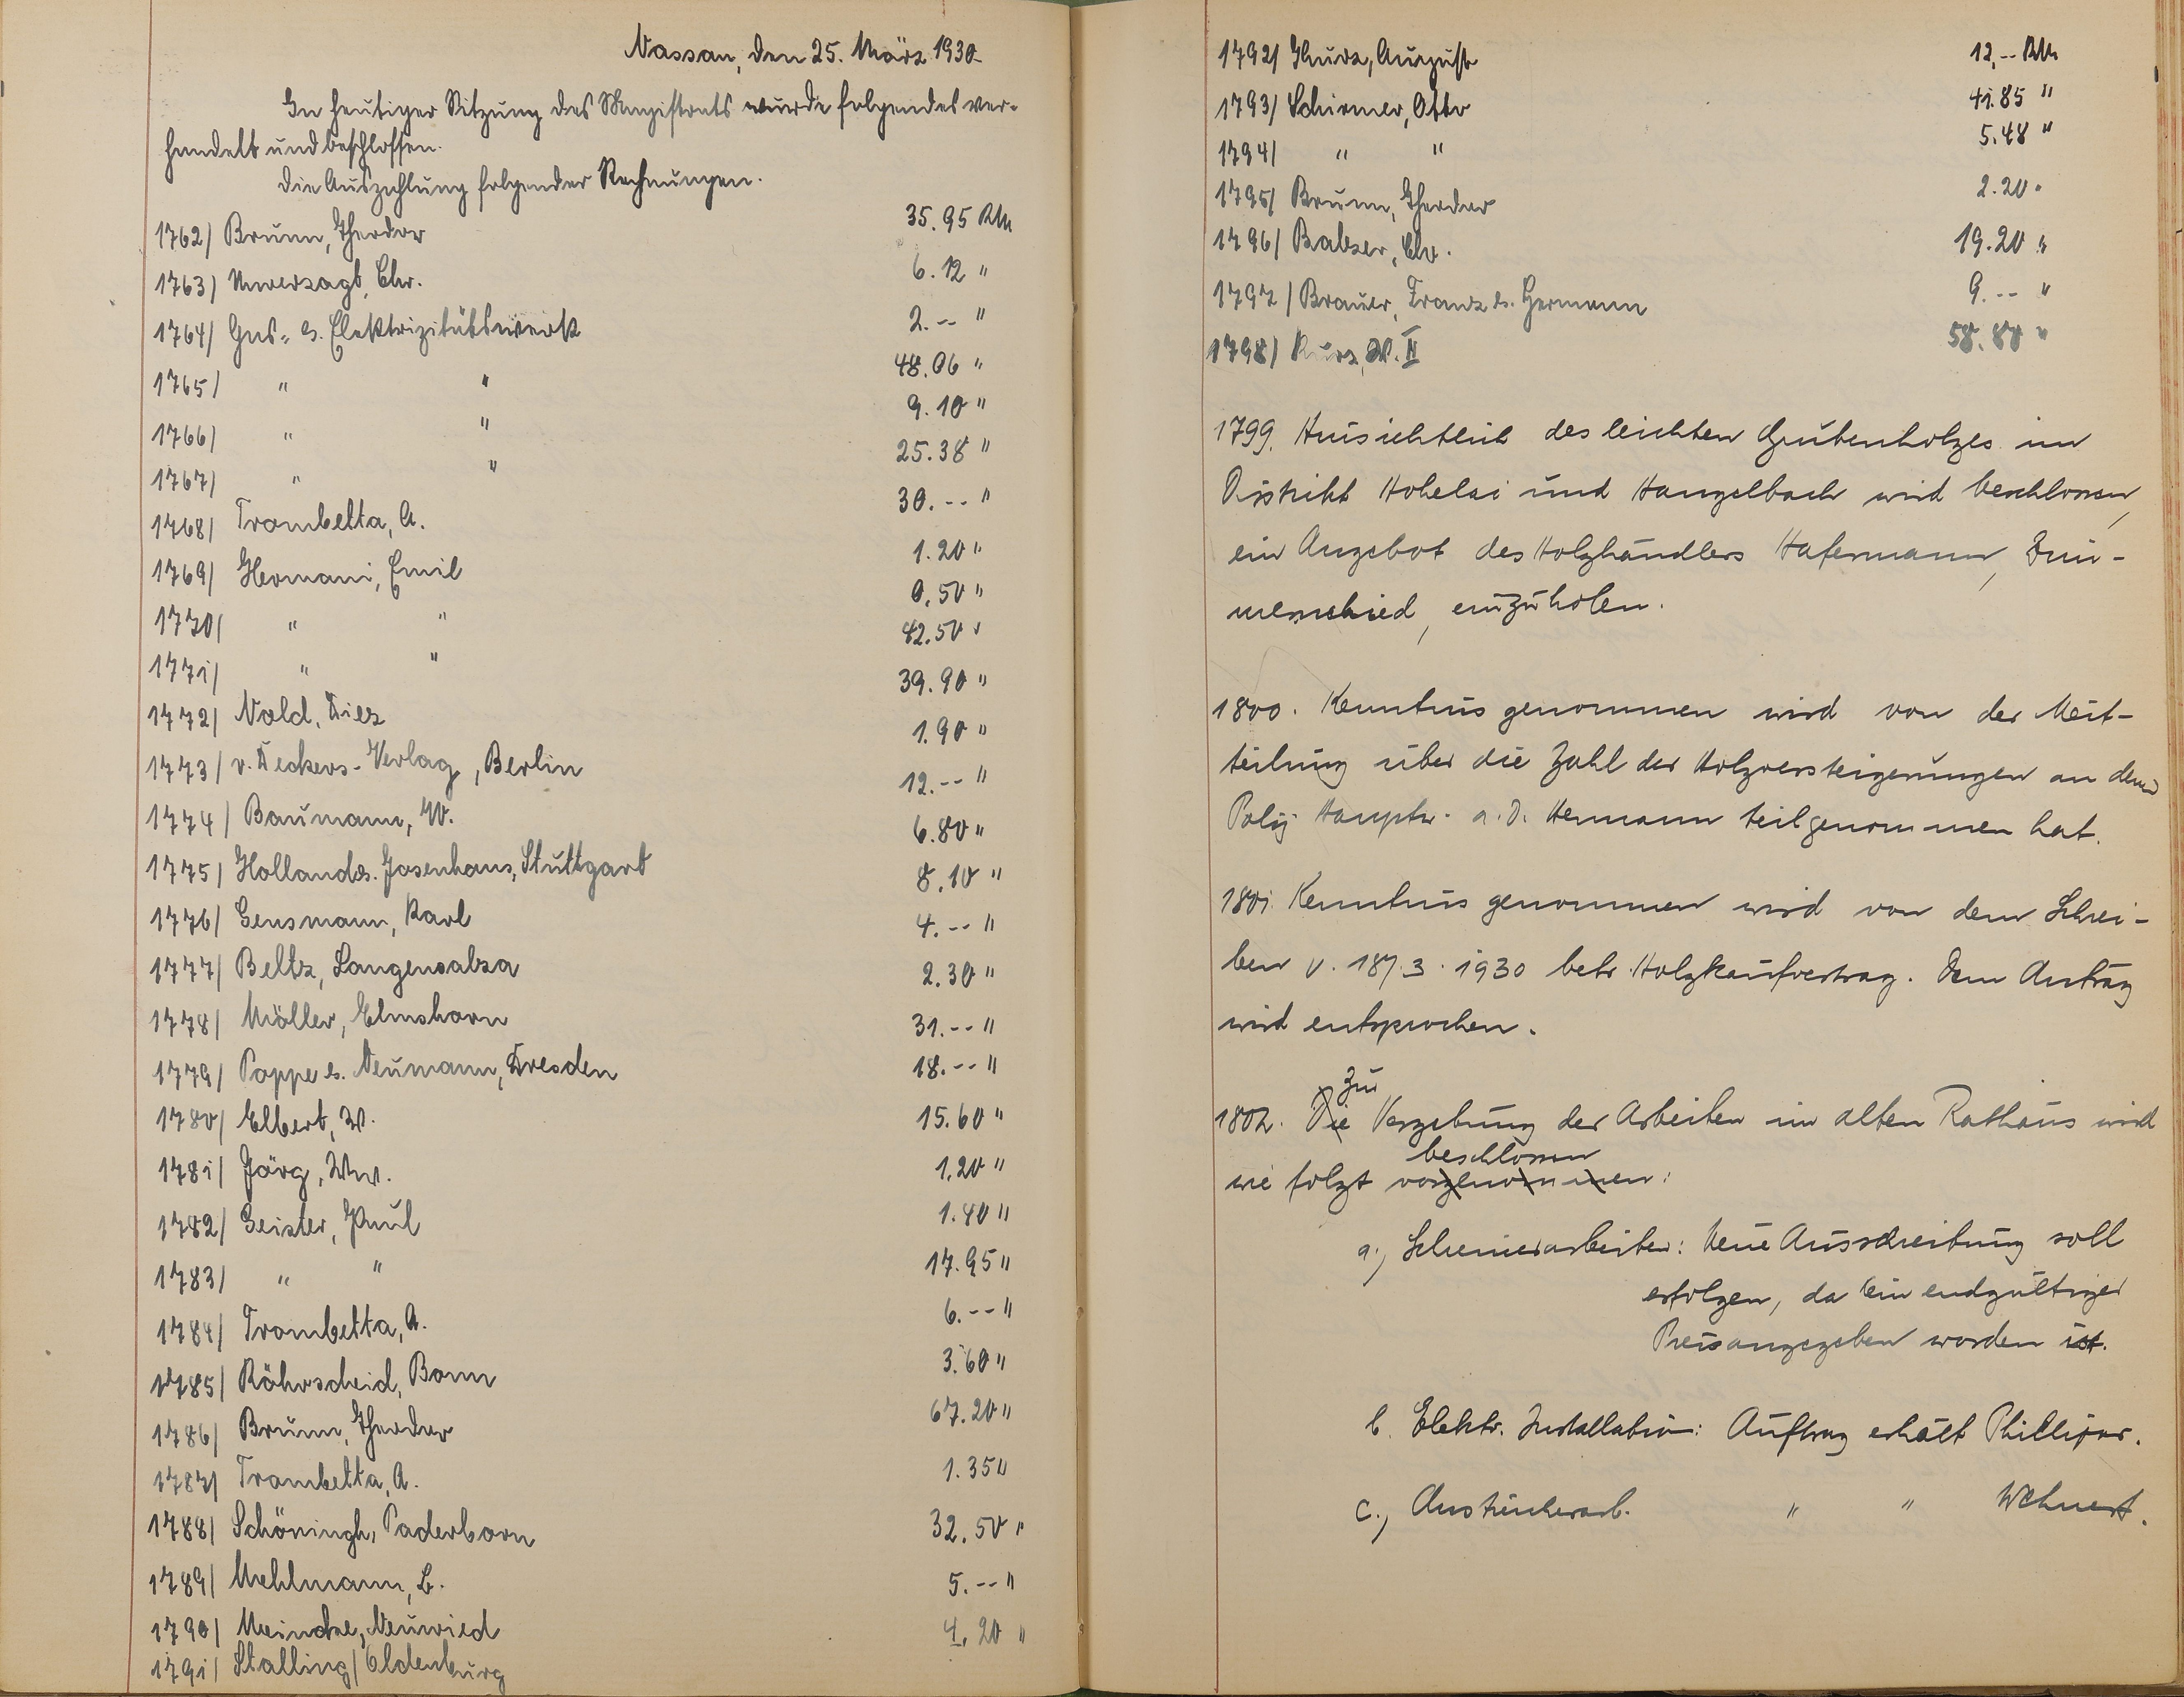 Nassau, den 25. März 1930
In heutiger Sitzung des Magistrats wurde folgendes ver-
handelt und beschlossen.
Die Auszahlung folgender Rechnungen.
1762/ Brunn, Theodor 35.95 RM
1763/ Unverzagt, Chr. 6.12 "
1764/ Gas- & Elektrizitätswerk 2.-- "
1765/ " " 48.06 "
1766/ " " 9.10 "
1767/ " " 25.38 "
1768/ Trombetta, A. 30.-- "
1769/ Hermani, Emil 1.20 "
1770/ " " 0,50 "
1771/ " " 42.50 "
1772/ Nold, Diez 39.90 "
1773/ v. Deckers-Verlag, Berlin 1.90 "
1774/ Baumann, W. 12.-- "
1775/ Holland & Josenhans, Stuttgart 6.80 "
1776/ Gensmann, Karl 8.10 "
1777/ Beltz, Langensalza 4.-- "
1778/ Möller, Elmshorn 2.30 "
1779/ Poppe & Neumann, Dresden 31.-- "
1780/ Elbert, W. 18.-- "
1781/ Jörg, Ww. 15.60 "
1782/ Geister, Paul 1.20 "
1783/ " " 1.40 "
1784/ Trombetta, A. 17.95 "
1785/ Röhrscheid, Bonn 6.-- "
1786/ Brunn, Theodor 3.60 "
1787/ Trombetta, A. 67.20 "
1788/ Schöningh, Paderborn 1.35 "
1789/ Mehlmann, L. 32.50 "
1790/ Meincke, Neuwied 5.-- "
1791/ Stalling/Oldenburg 4.20 "
1792/ Kurz, August 12,-- RM
1793/ Schirmer, Otto 41.85 "
1794/ " " 5.48 "
1795/ Brunn, Theodor 2.20 "
1796/ Balzer, Chr. 19.20 "
1797/ Brauer, Franz & Hermann 9.-- "
1798/ Kurz, W. II 58.88 "
1799. Hinsichtlich des leichten Grubenholzes im
Distrikt Hohelai und Hangelbach wird beschlossen,
ein Angebot des Holzhändlers Hafermann, Zim-
merschied, einzuholen.
1800. Kenntnis genommen wird von der Mit-
teilung über die Zahl der Holzversteigerungen an denen
Poliz. Hauptw. a.D. Hermann teilgenommen hat.
1801. Kenntnis genommen wird von dem Schrei-
ben v. 18/.3.1930 betr. Holzkaufvertrag. Dem Antrag
wird entsprochen.
Zur
1802. Die Vergebung der Arbeiten im alten Rathaus wird
beschlossen
wie folgt vorgenommen:
a., Schreinerarbeiten: Neue Ausschreibung soll
erfolgen, da kein endgültiger
Preis angegeben worden ist.
b. Elektr. Installation: Auftrag erhält Phillipar.
c., Anstreicherarb. " " Wehnert.